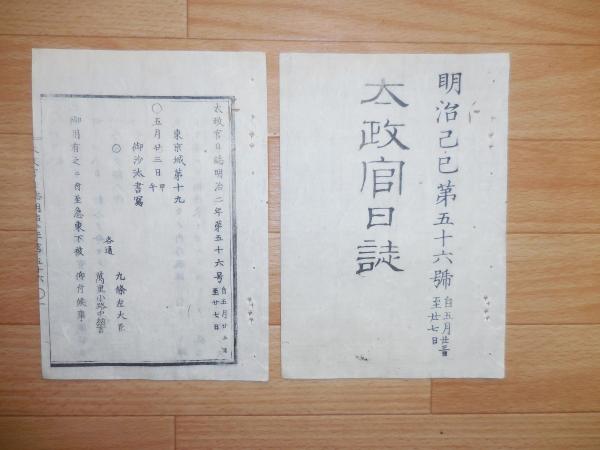 明治己巳第五十六號 自五月廿三日
至廿七日
太政官日誌
太政官日誌明治二年第五十六号 自五月廿三日
至廿七日
東京城第十九
〇五月廿三日 甲午
御沙汰書寫
〇
九條左大臣
萬里小路中納言
各通
御用有之ニ付至急東下被 仰付候事